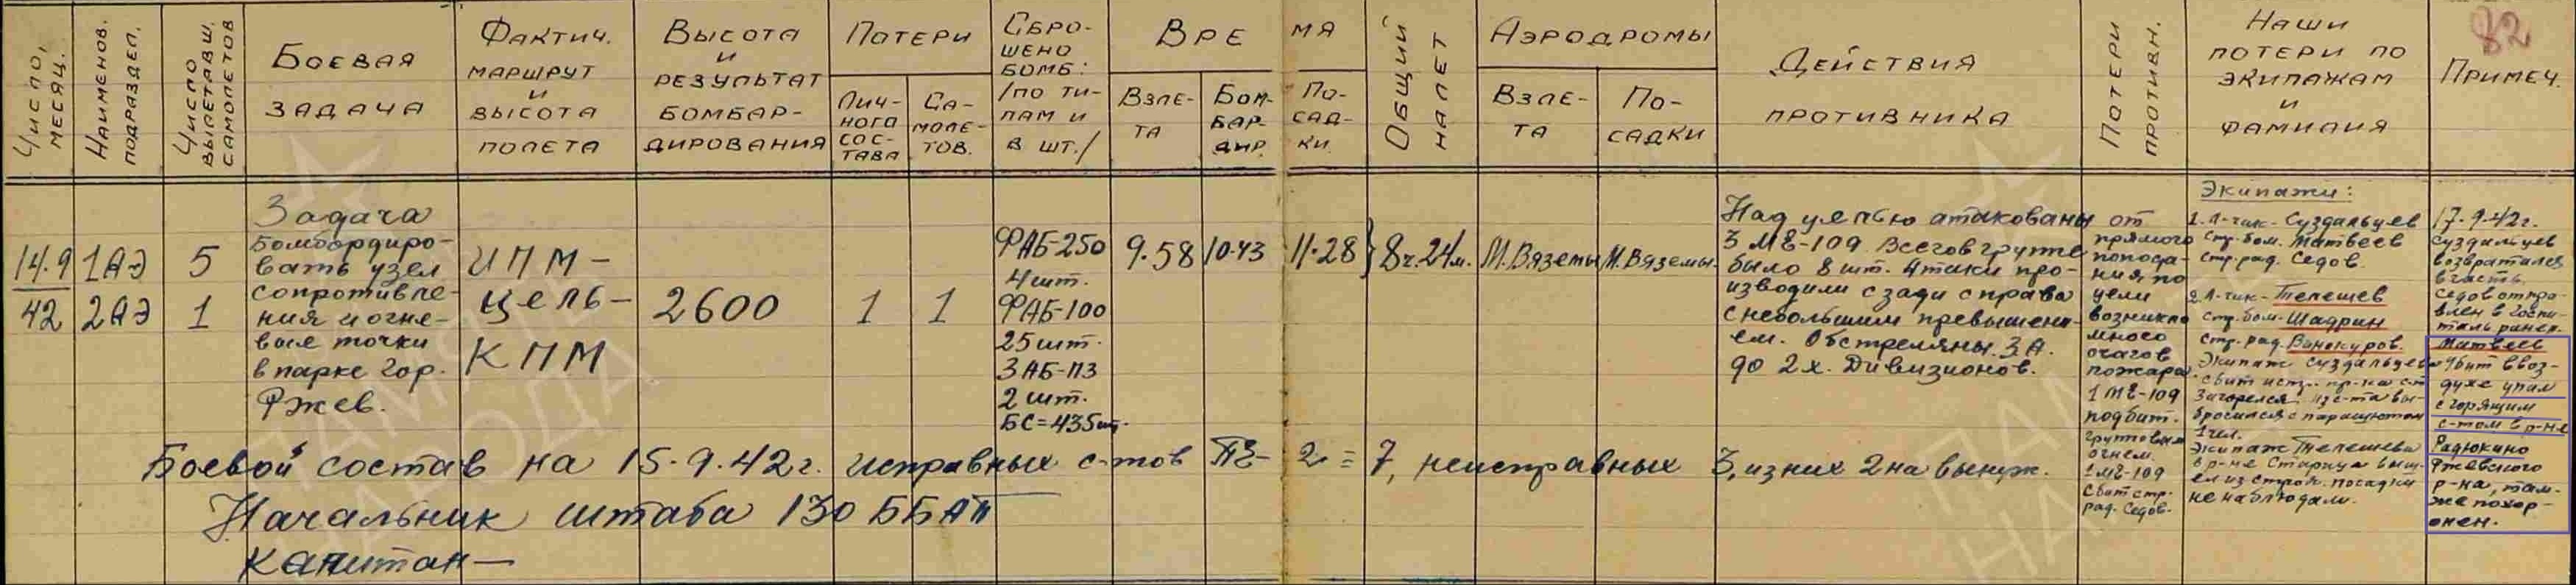 Число, месяц.
Наименов. подраздел.
Число вылетавш. самолетов
Боевая
задача
Фактич.
маршрут
и
высота
полета
Высота
и
результат
бомбар-
дирования
Потери
Лич-
ного
сос-
тава
Са-
моле-
тов.
Сбро-
шено
бомб:
/по ти-
пам и
в шт./
Время
Взле-
та
Бом-
бар-
дир.
По-
сад-
ки.
Общий налет
Аэродромы
Взле-
та
По-
садки
Действия
противника
Потери противн.
Наши
потери по
экипажам
и
фамилия
Примеч.
82
14.9
42
1АЭ
2АЭ
5
1
Задача
бомбардиро-
вать узел
сопротивле-
ния и огне-
вые точки
в парке гор.
Ржев.
ИПМ-
цель-
КПМ
2600
1
1
ФАБ-250
4 шт.
ФАБ-100
25 шт.
ЗАБ-ПЗ
2 шт.
БС=435 шт.
9.58
10.43
11.28
8ч.24м.
М.Вяземы
М.Вяземы.
Над целью атакованы
3 МЕ-109. Всего в группе
было 8 шт. Атаки про-
изводили сзади справа
с небольшим превышени-
ем. Обстреляны ЗА.
до 2х. Дивизионов.
от
прямого
попада-
ния, по
цели
возникло
много
очагов
пожара.
1 МЕ-109
подбит.
групповым
огнем.
1МЕ-109
сбит стр.
рад. Седов.
Экипажи:
1. Л-чик- Суздальцев
Стр.бом. Матвеев
Стр.рад. Седов.
2. Л-чик- Телешев
Стр.бом- Шадрин
Стр.рад. Винокуров.
Экипаж Суздальцева
сбит истр. пр-ка с-т
загорелся. Из с-та вы-
бросился с парашютом
1 чел.
Экипаж Телешева
в р-не Старица выш-
ел из строя. посадки
не наблюдали.
17.9.42г.
Суздальцев
возвратился
в часть.
Седов отпра-
влен в госпи-
таль ранен.
Матвеев
убит в воз-
духе упал
с горящим
с-том в р-не
Радюкино
Ржевского
р-на, там-
же похор-
онен.
Боевой состав на 15.9.42г. исправных с-тов ПЕ-2 = 7, неисправных 3, из них 2 на вынуж.
Начальник штаба 130 ББАП
капитан-